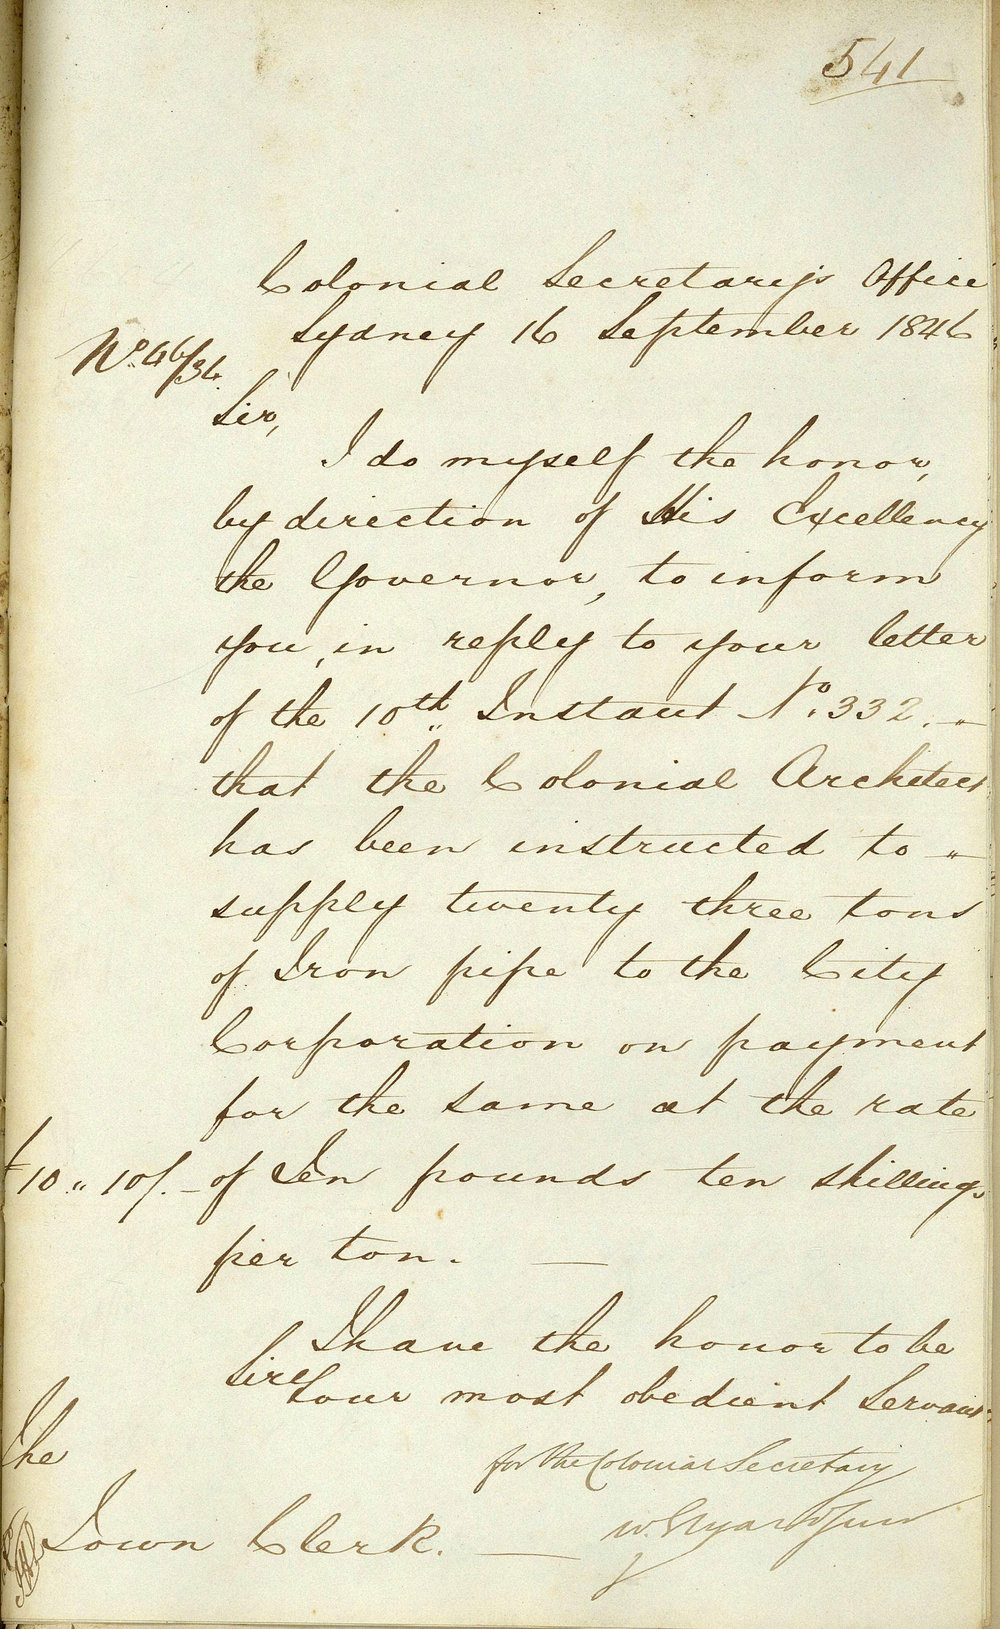 541
Colonial Secretary's Office
Sydney 16 September 1846
No. 46/34.
Sir,
I do myself the honor,
by direction of His Excellency
the Governor, to inform
you, in reply to your letter
of the 10th Instant No. 332. -
that the Colonial Architect
has been instructed to -
supply twenty three tons
of Iron pipe to the City
Corporation on payment
for the same at the rate
£10 " 10/. - of Ten pounds ten shillings
per ton. —
I have the honor to be
Sir
Your most obedient Servant
for the Colonial Secretary
W. Elyard Junr
The
Town Clerk. —